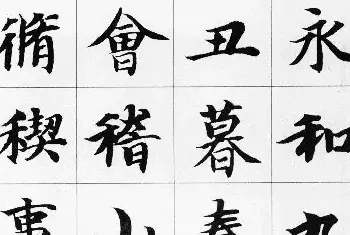 永和九
丑暮春
會稽山
脩稧事